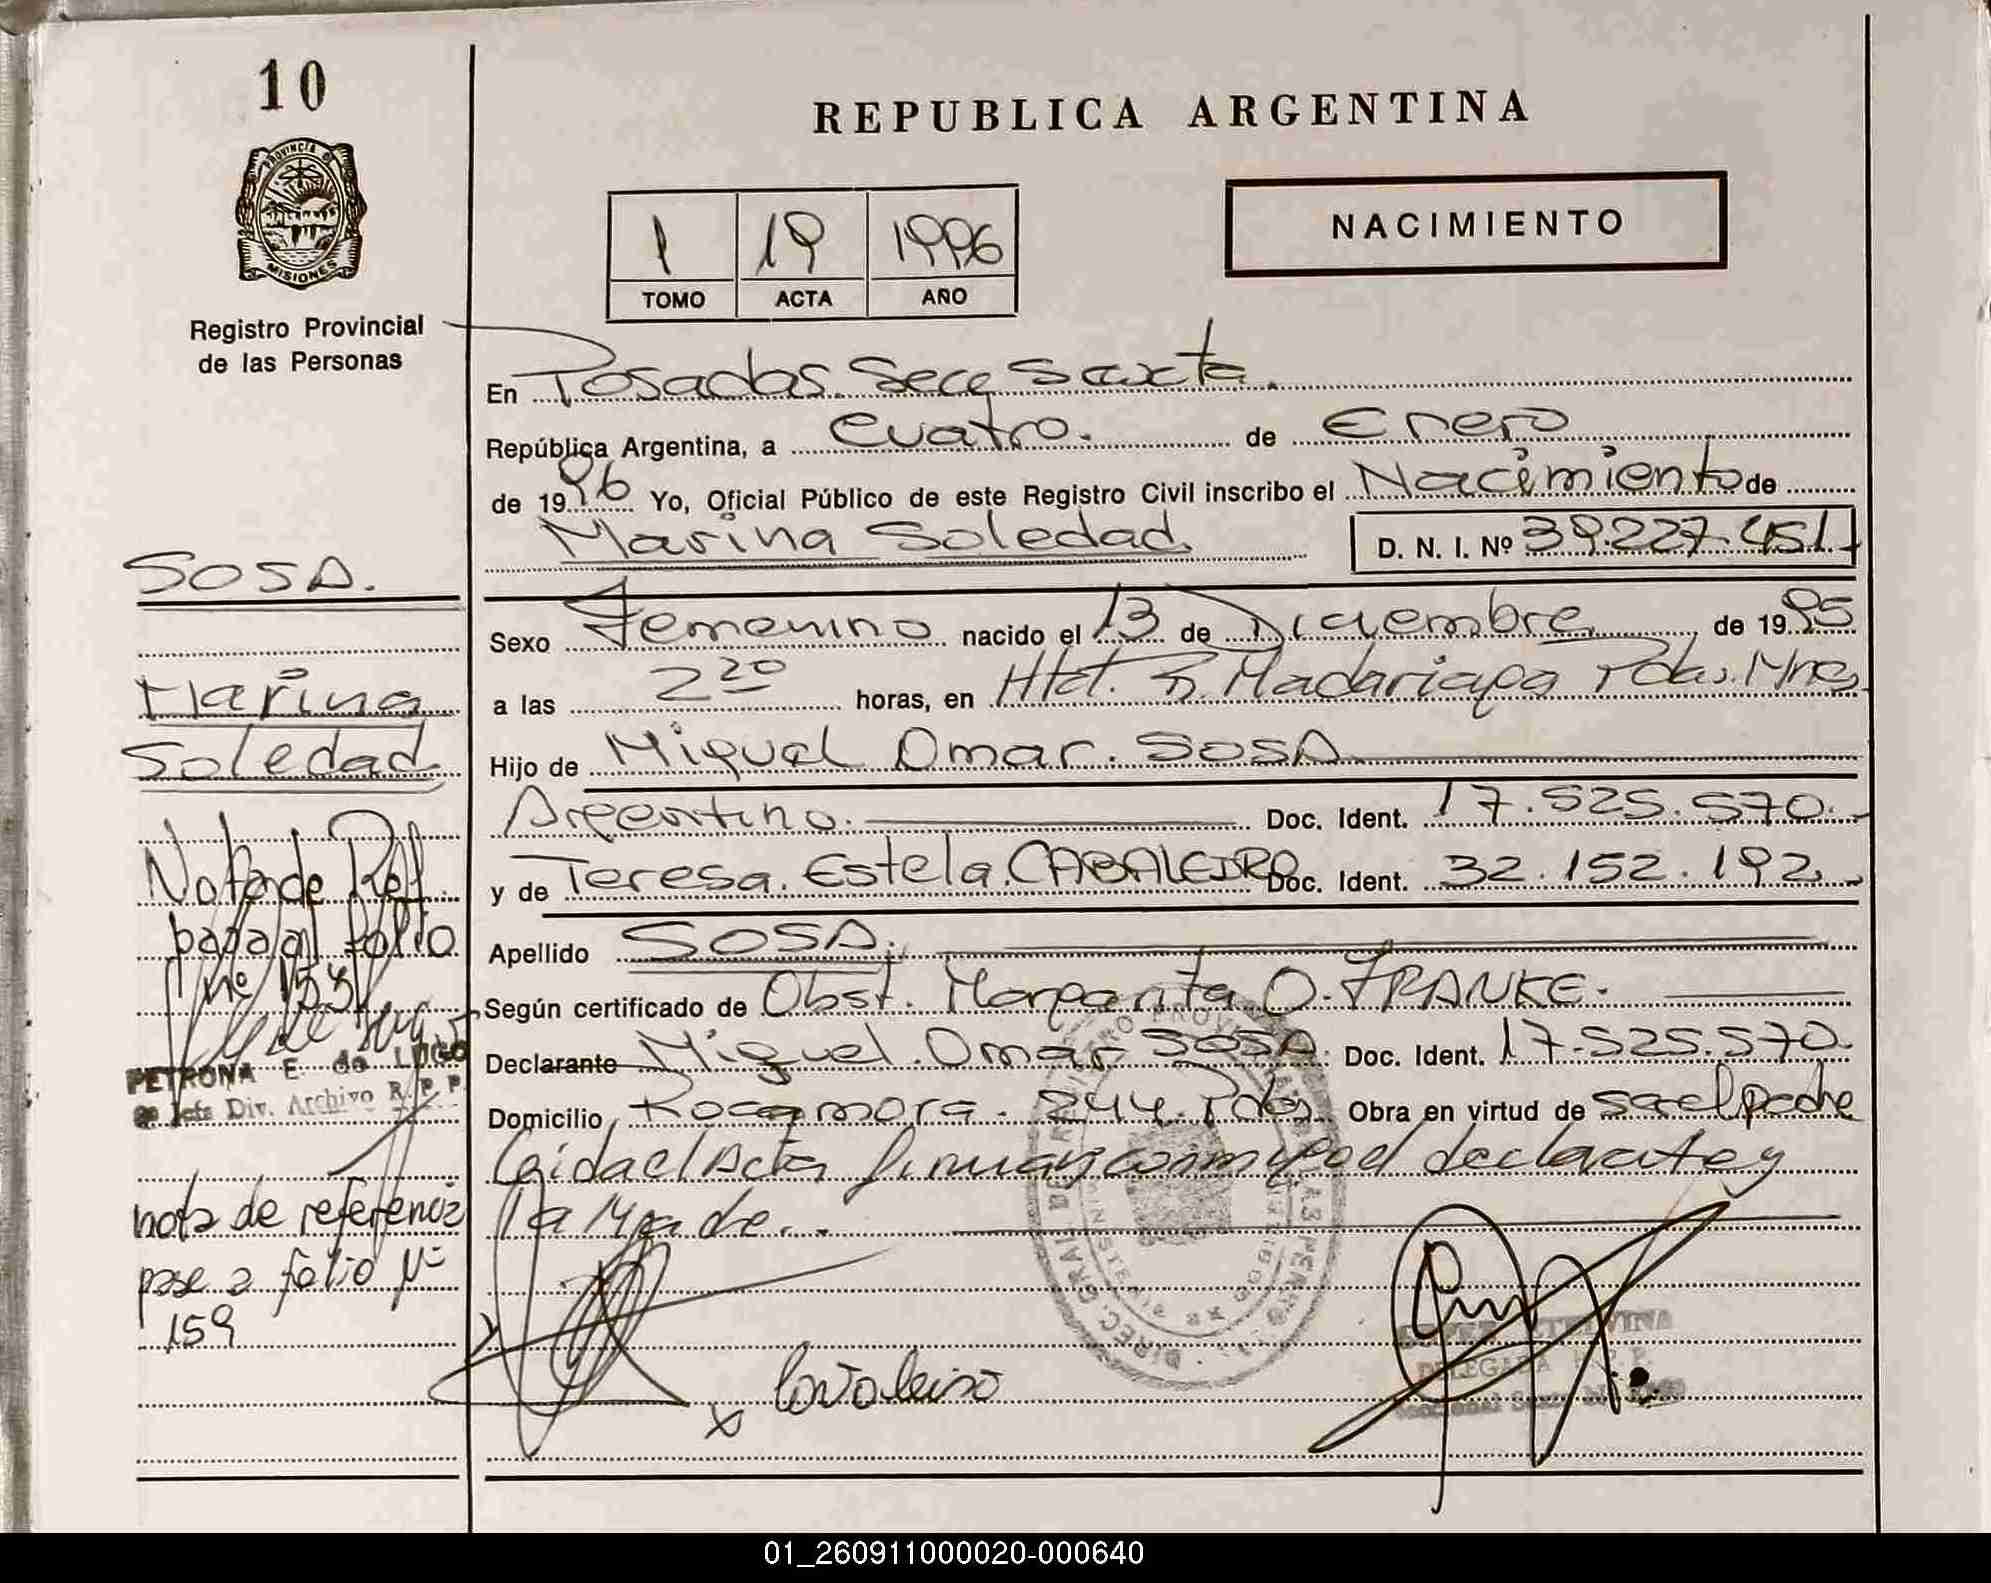 10
REPUBLICA ARGENTINA
PROVINCIA DE
MISIONES
1 19 1996
TOMO ACTA AÑO
NACIMIENTO
Registro Provincial
de las Personas
En Posadas. Secc Sexta.
República Argentina, a Cuatro. de Enero
de 1996 Yo, Oficial Público de este Registro Civil inscribo el Nacimiento de
Marina Soledad D. N. I. Nº 39.227.451.
SOSA.
Marina
Soledad
Sexo Femenino nacido el 13 de Diciembre de 1995
a las 2 20 horas, en Htal. R. Madariaga Pdas. Mnes
Hijo de Miguel Omar. SOSA
Argentino. Doc. Ident. 17.525.570.
y de Teresa. Estela. CABALEIRO Doc. Ident. 32.152.192.
Apellido SOSA.
Según certificado de Obst. Margarita O. FRANKE.
Declarante Miguel. Omar SOSA. Doc. Ident. 17.525.570.
Domicilio Rocamora. 244. Pdas Obra en virtud de ser el padre
Leida el Acta firman conmigo el declarante y
la Madre...
Nota de Ref.
pasa al folio
nº 153
PETRONA E. de LUGO
Jefa Div. Archivo R. P. P.
nota de referencia
pase a folio Nº
159
x Cavaleiro
DELEGADA R. P. P.
01_260911000020-000640